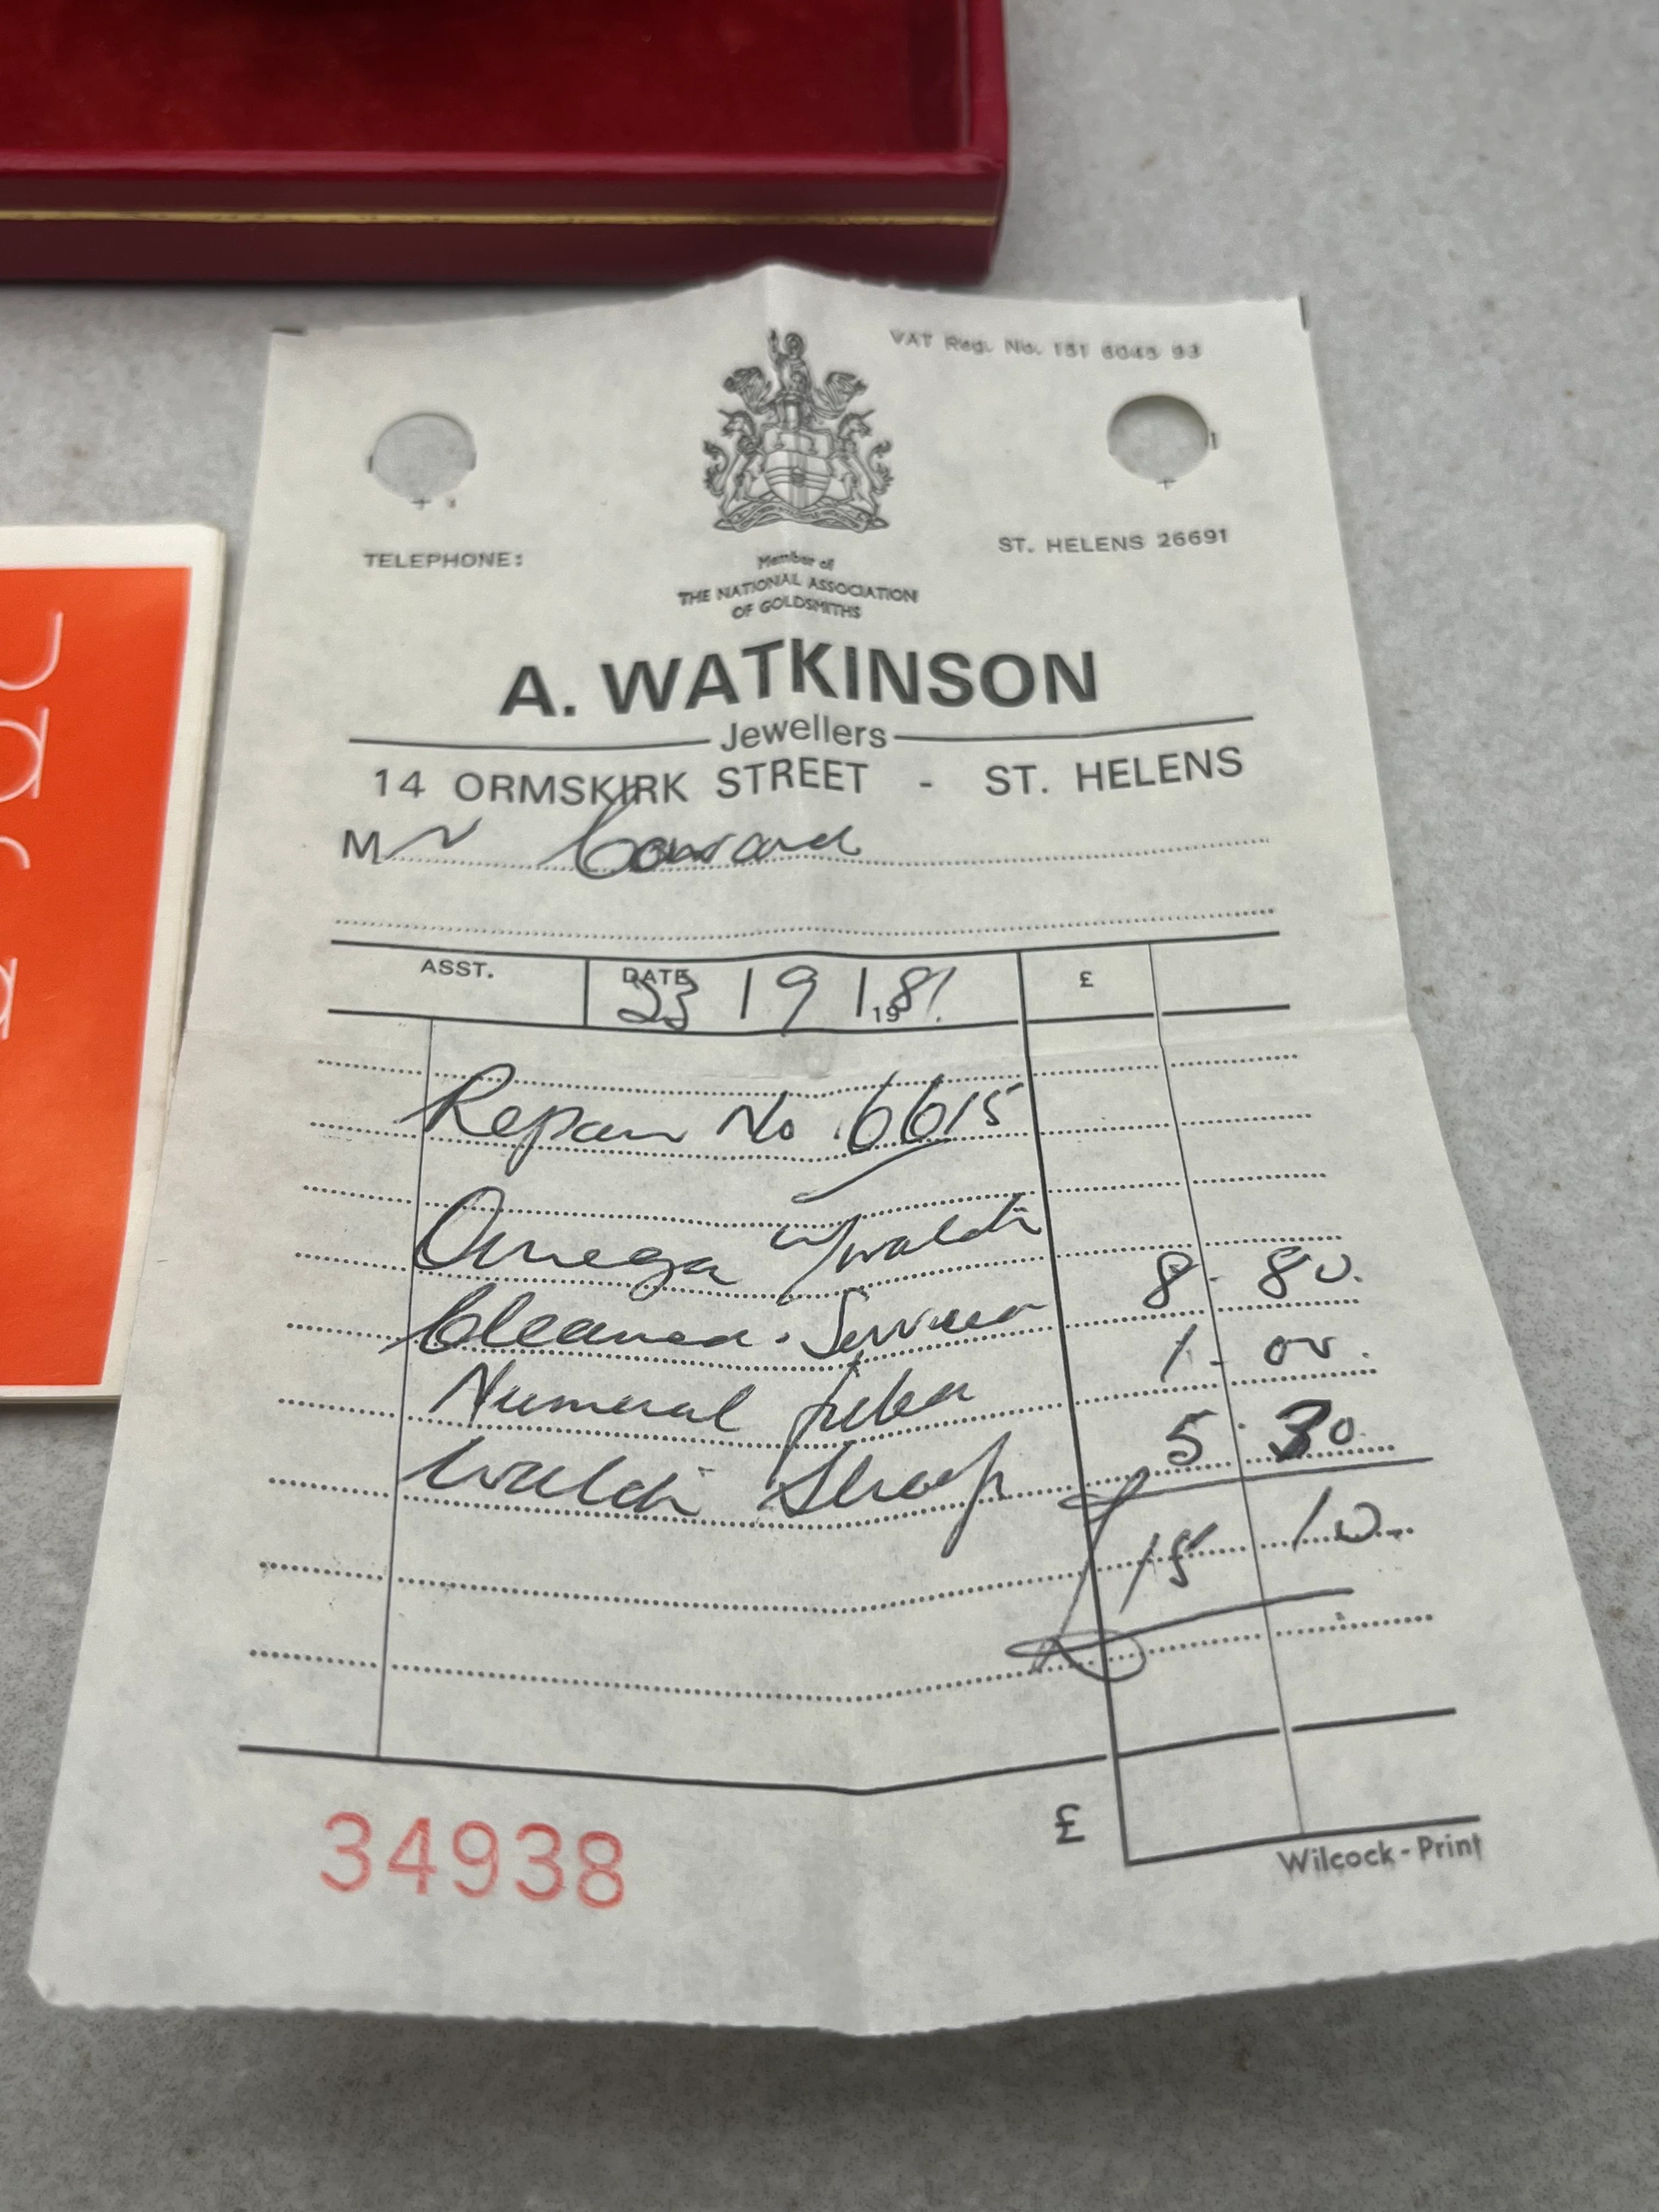 VAT Reg. No. 151 6045 93
TELEPHONE:
ST. HELENS 26691
Member of
THE NATIONAL ASSOCIATION
OF GOLDSMITHS
A. WATKINSON
Jewellers
14 ORMSKIRK STREET - ST. HELENS
Mr Coward
ASST. DATE 23 | 9 | 1981. £
Repair No 6615
Omega w/watch
Cleaned. Serviced 8 - 80.
Numeral 1 - 00.
Watch Strap 5 - 30.
15 10
£
34938
Wilcock-Print